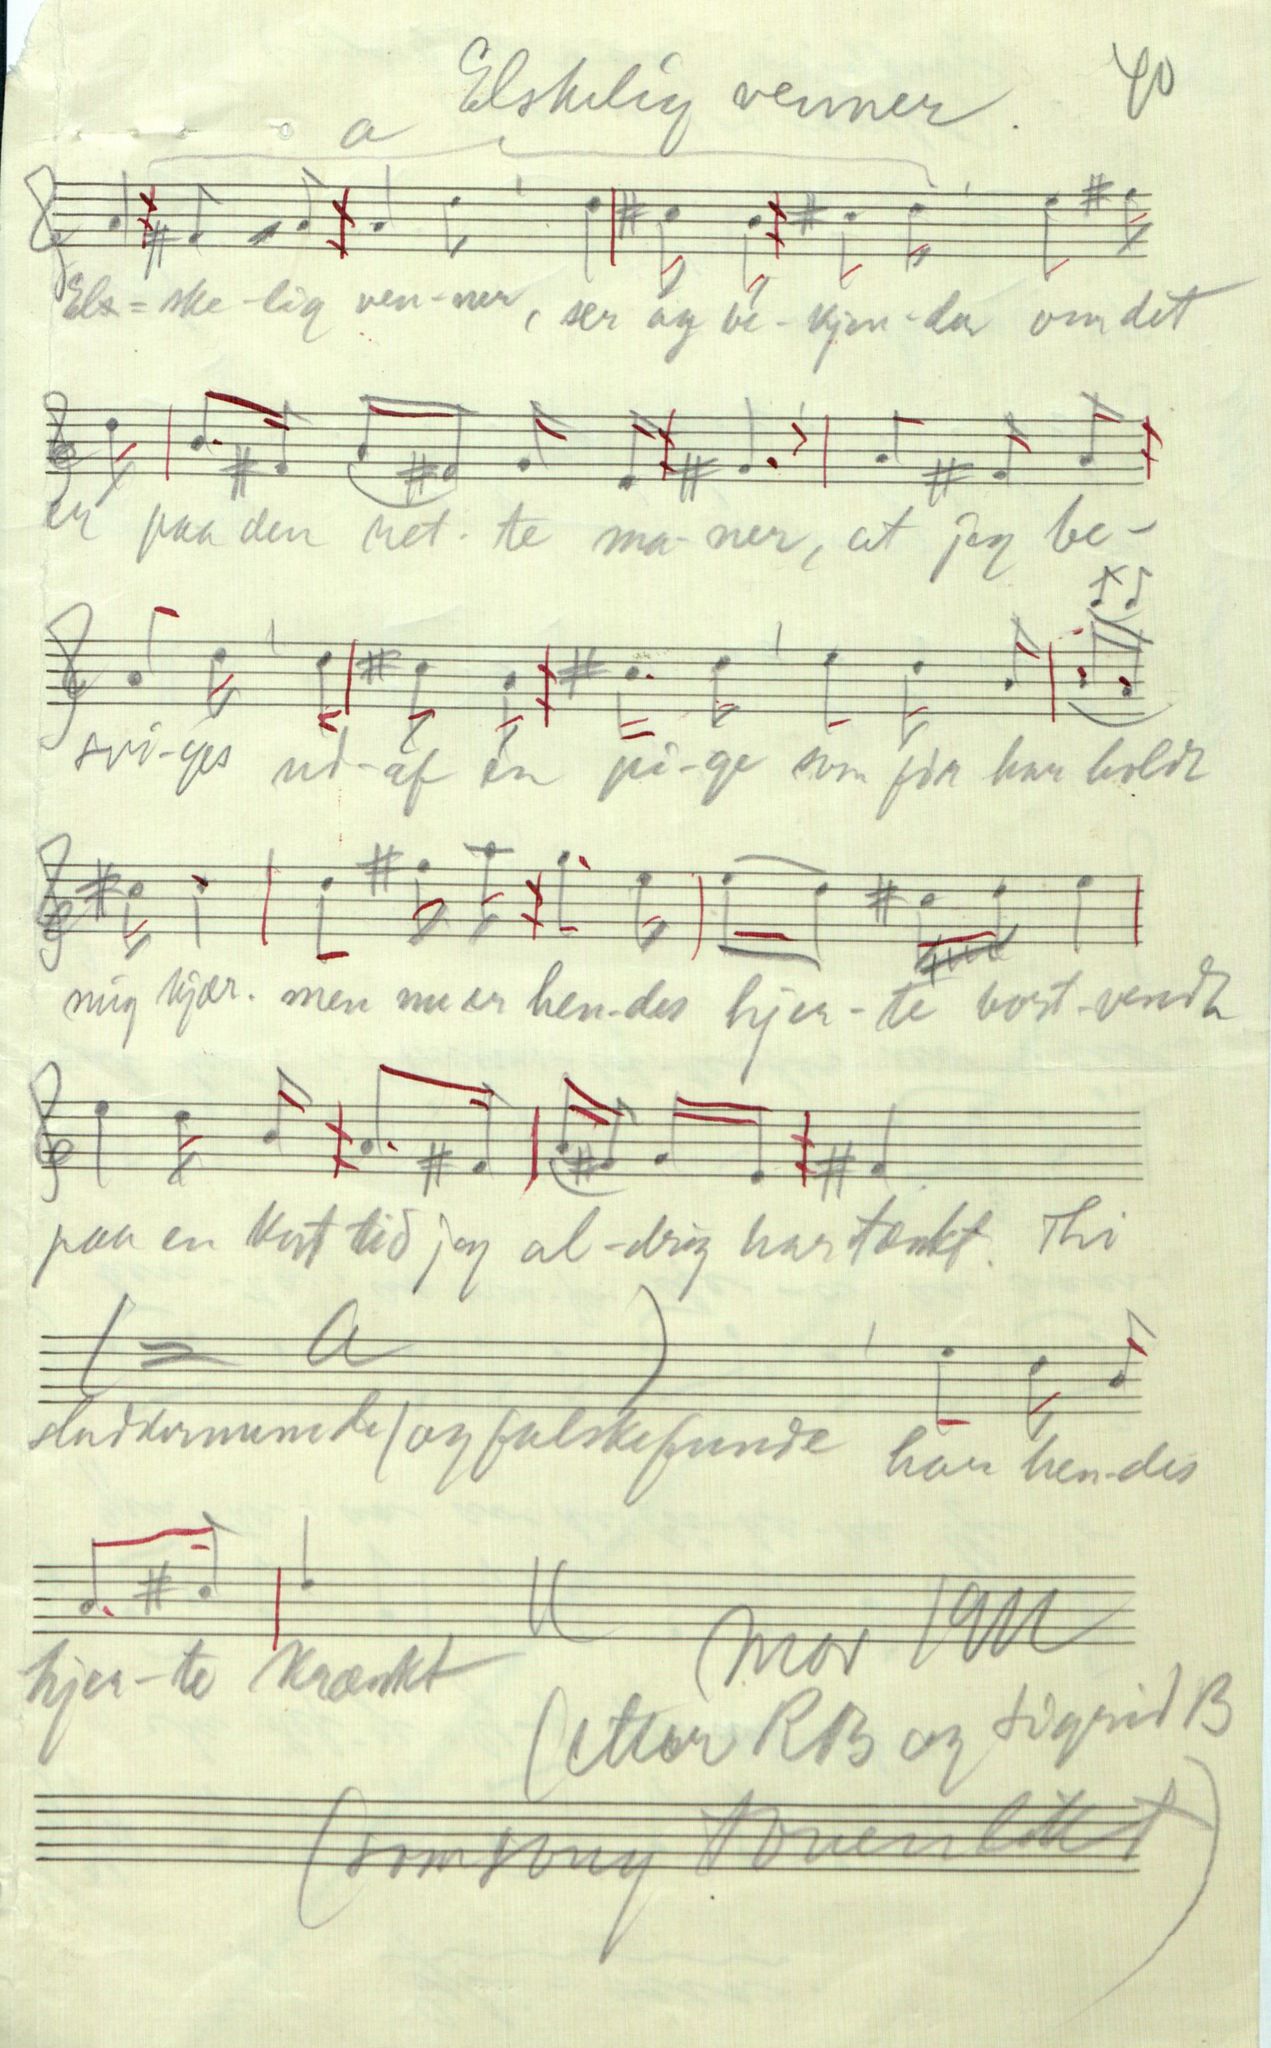 Elskelig venner.
40
a
Els=ske-lig ven-ner, ser og be-kjen-der om det
er paa den ret-te ma-ner, at jeg be-
svi-ges ud-af en pi-ge som før har holdt
mig kjær. men nu er hen-des hjer-te bort-vendt
paa en kort tid jeg al-drig har tænkt. Thi
( = a )
sluddermunde / og falske funde har hen-des
hjer-te krænkt
mor 1911
(etter RB og Sigrid B
(som song